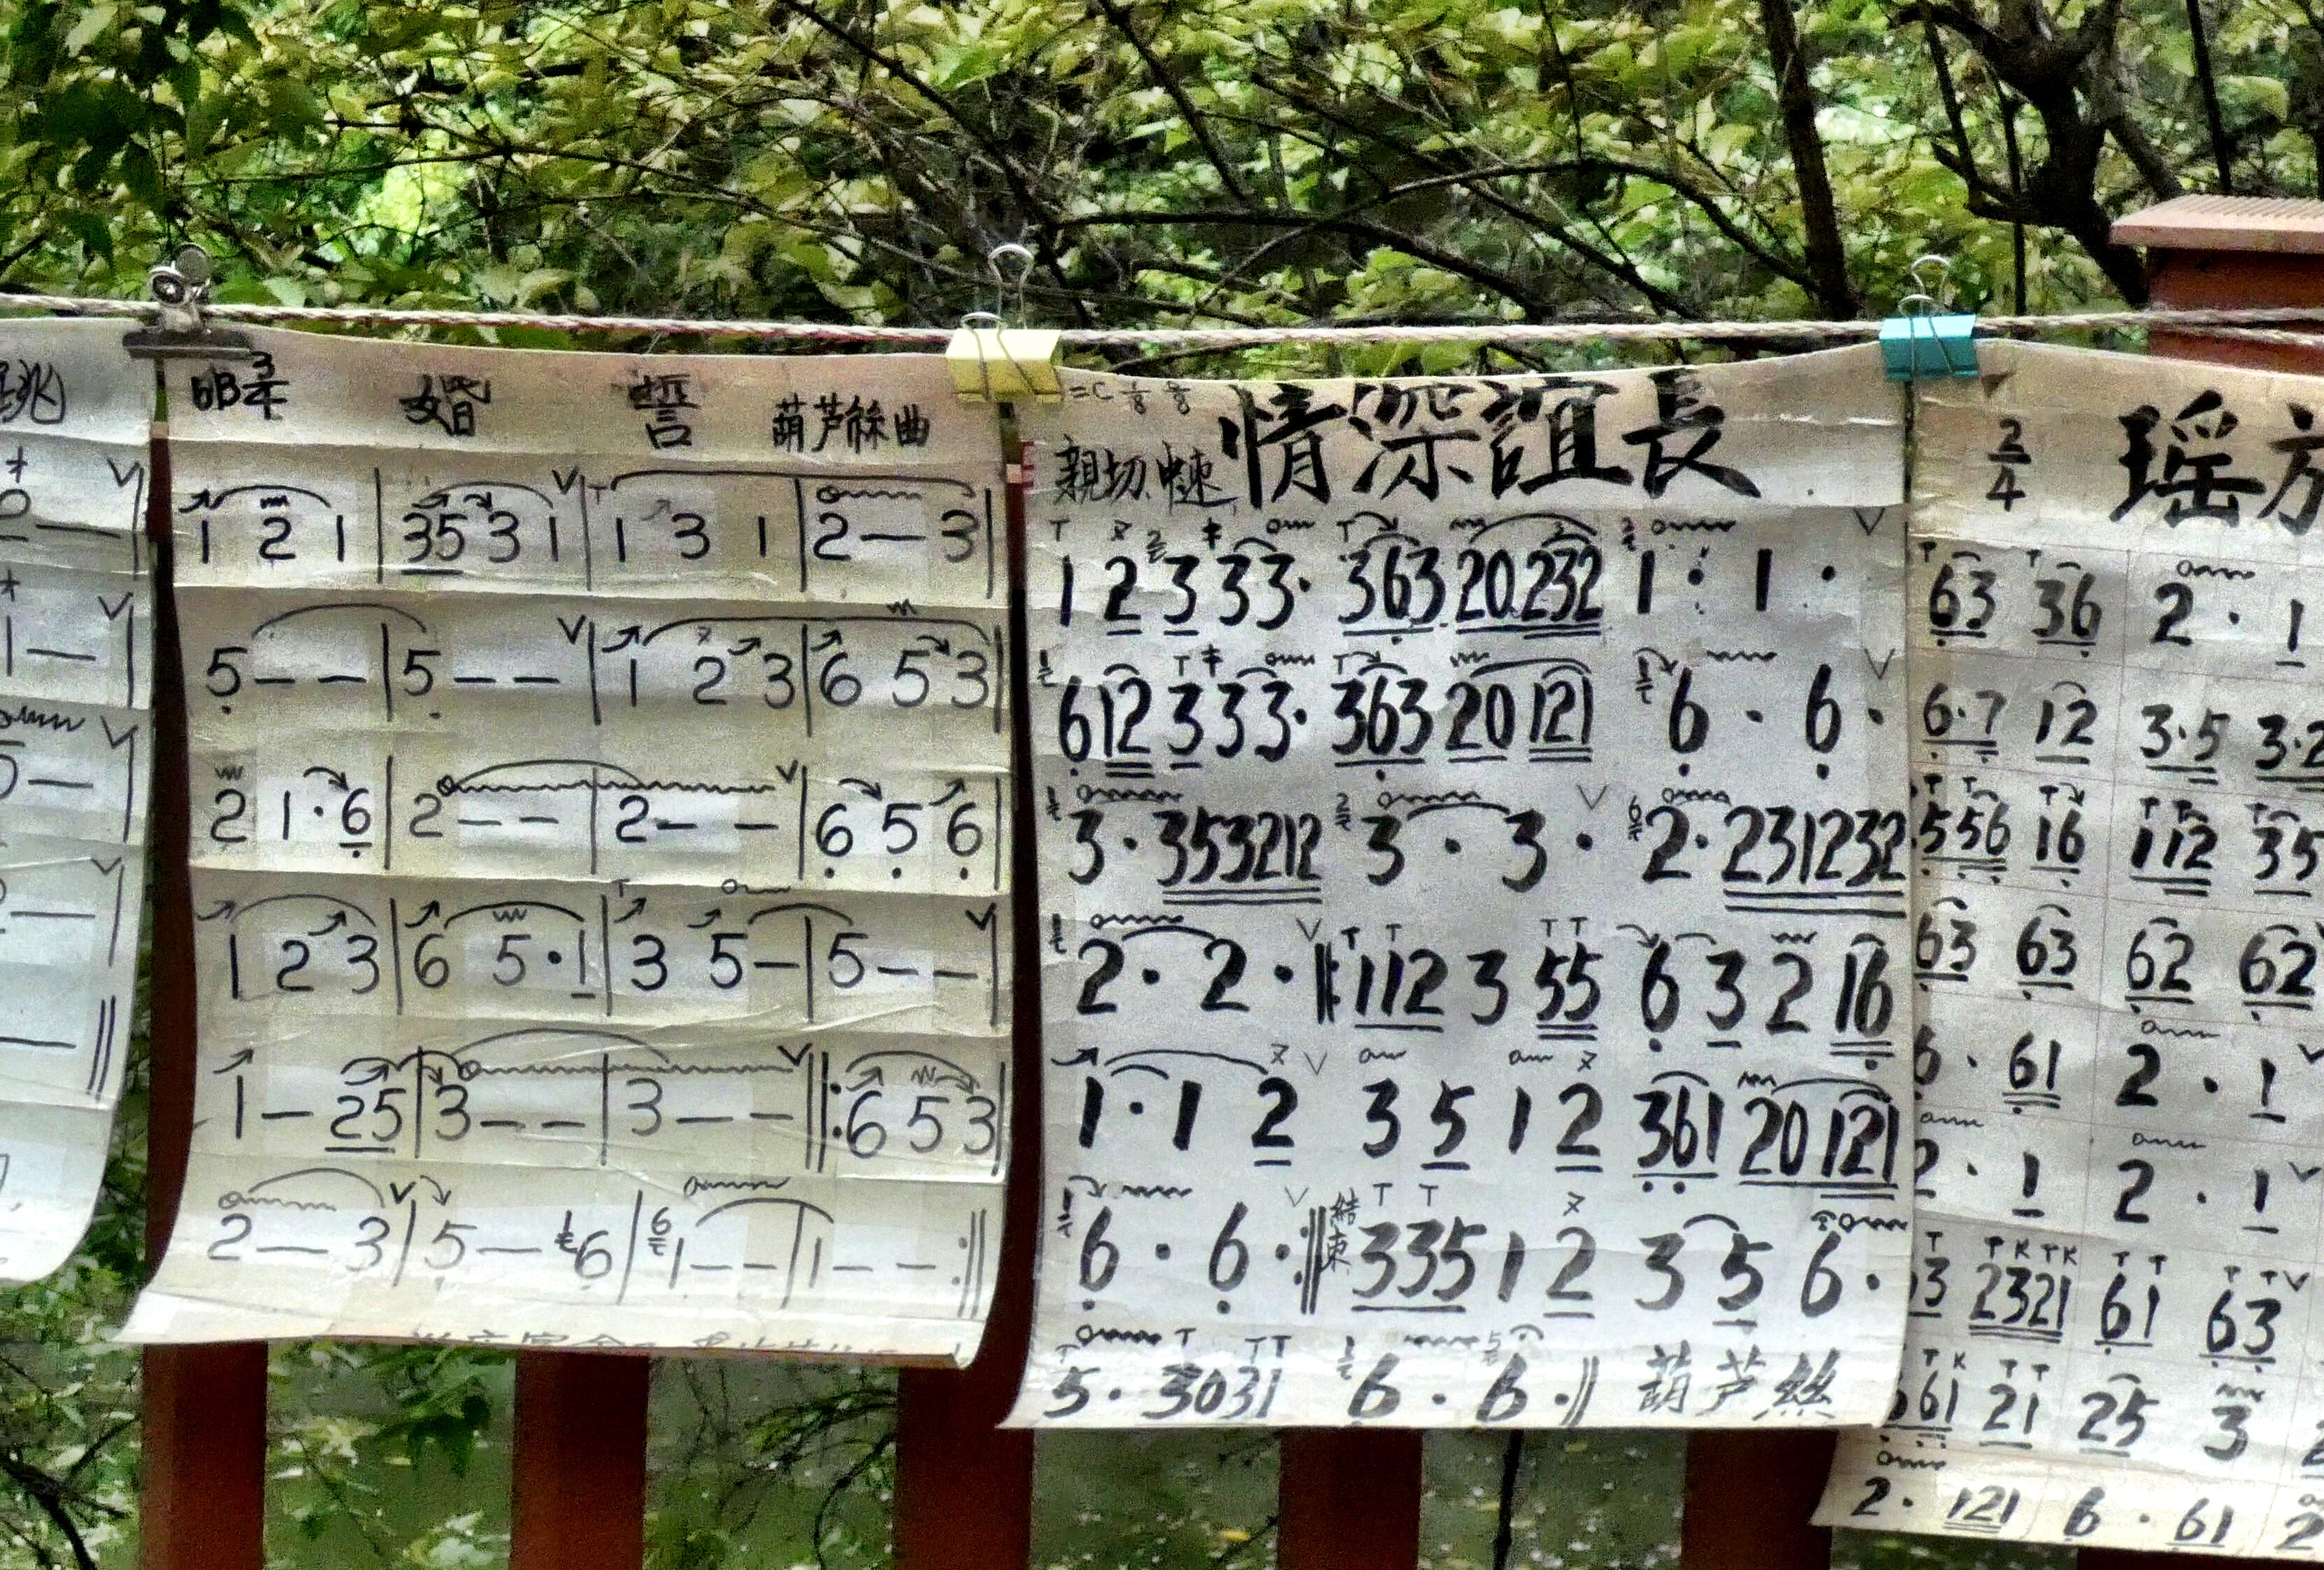 跳
♭B 3/4 婚 誓 葫芦絲曲
1 2 1 | 35 3 1 | 1 3 1 | 2 — 3 |
5 — — | 5 — — | 1 2 3 | 6 5 3 |
2 1·6 | 2 — — | 2 — — | 6 5 6 |
1 2 3 | 6 5·1 | 3 5 — | 5 — — |
1 — 25 | 3 — — | 3 — — ‖: 6 5 3 |
2 — 3 | 5 — 6 | 1 — — | 1 — — :‖
=C 情深誼長
親切 中速
1 2 3 33· 363 20 232 1 · 1 ·
6 12 3 33· 363 20 121 6 · 6 ·
3 · 353212 3 · 3 · 2 · 231232
2 · 2 · ‖: 112 3 55 6 3 2 16
1 · 1 2 3 5 1 2 361 20 121
6 · 6 · :‖ 結束 335 1 2 3 5 6 ·
5 · 3031 6 · 6 · ‖ 葫芦絲
2/4 瑶
63 36 2 · 1
6·7 12 3·5 3·2
556 16 112 35
63 63 62 62
6 · 61 2 · 1
2 · 1 2 · 1
3 2321 61 63
561 21 25 3
2 · 121 6 · 61